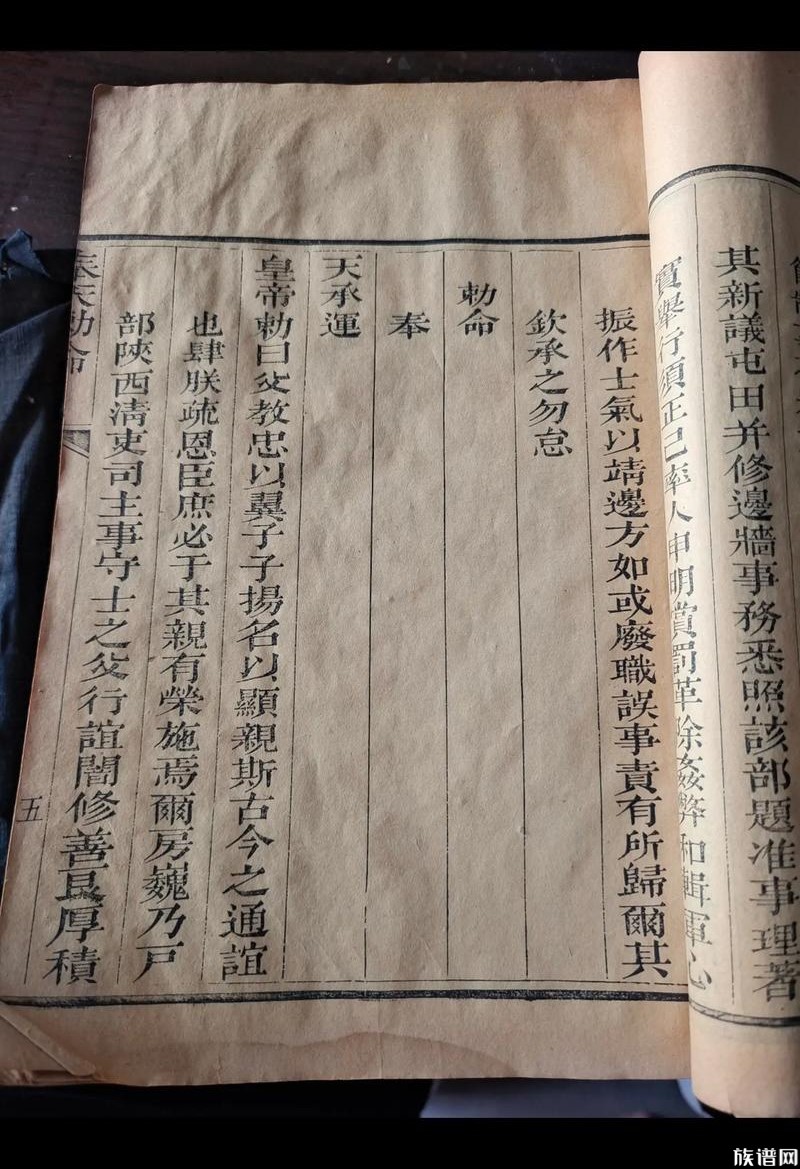 其新議屯田并修邊牆事務悉照該部題准事理著
實舉行須正己率人申明賞罰革除姦弊和輯軍心
振作士氣以靖邊方如或廢職誤事責有所歸爾其
欽承之勿怠
勅命
奉
天承運
皇帝勅曰父教忠以翼子子揚名以顯親斯古今之通誼
也肆朕疏恩臣庶必于其親有榮施焉爾房巍乃戸
部陝西清吏司主事守士之父行誼闇修善良厚積
奉天勅命
五
族谱网